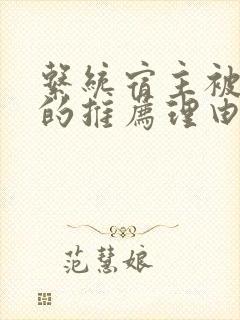 繫統宿主被
的推薦理由
范慧娘